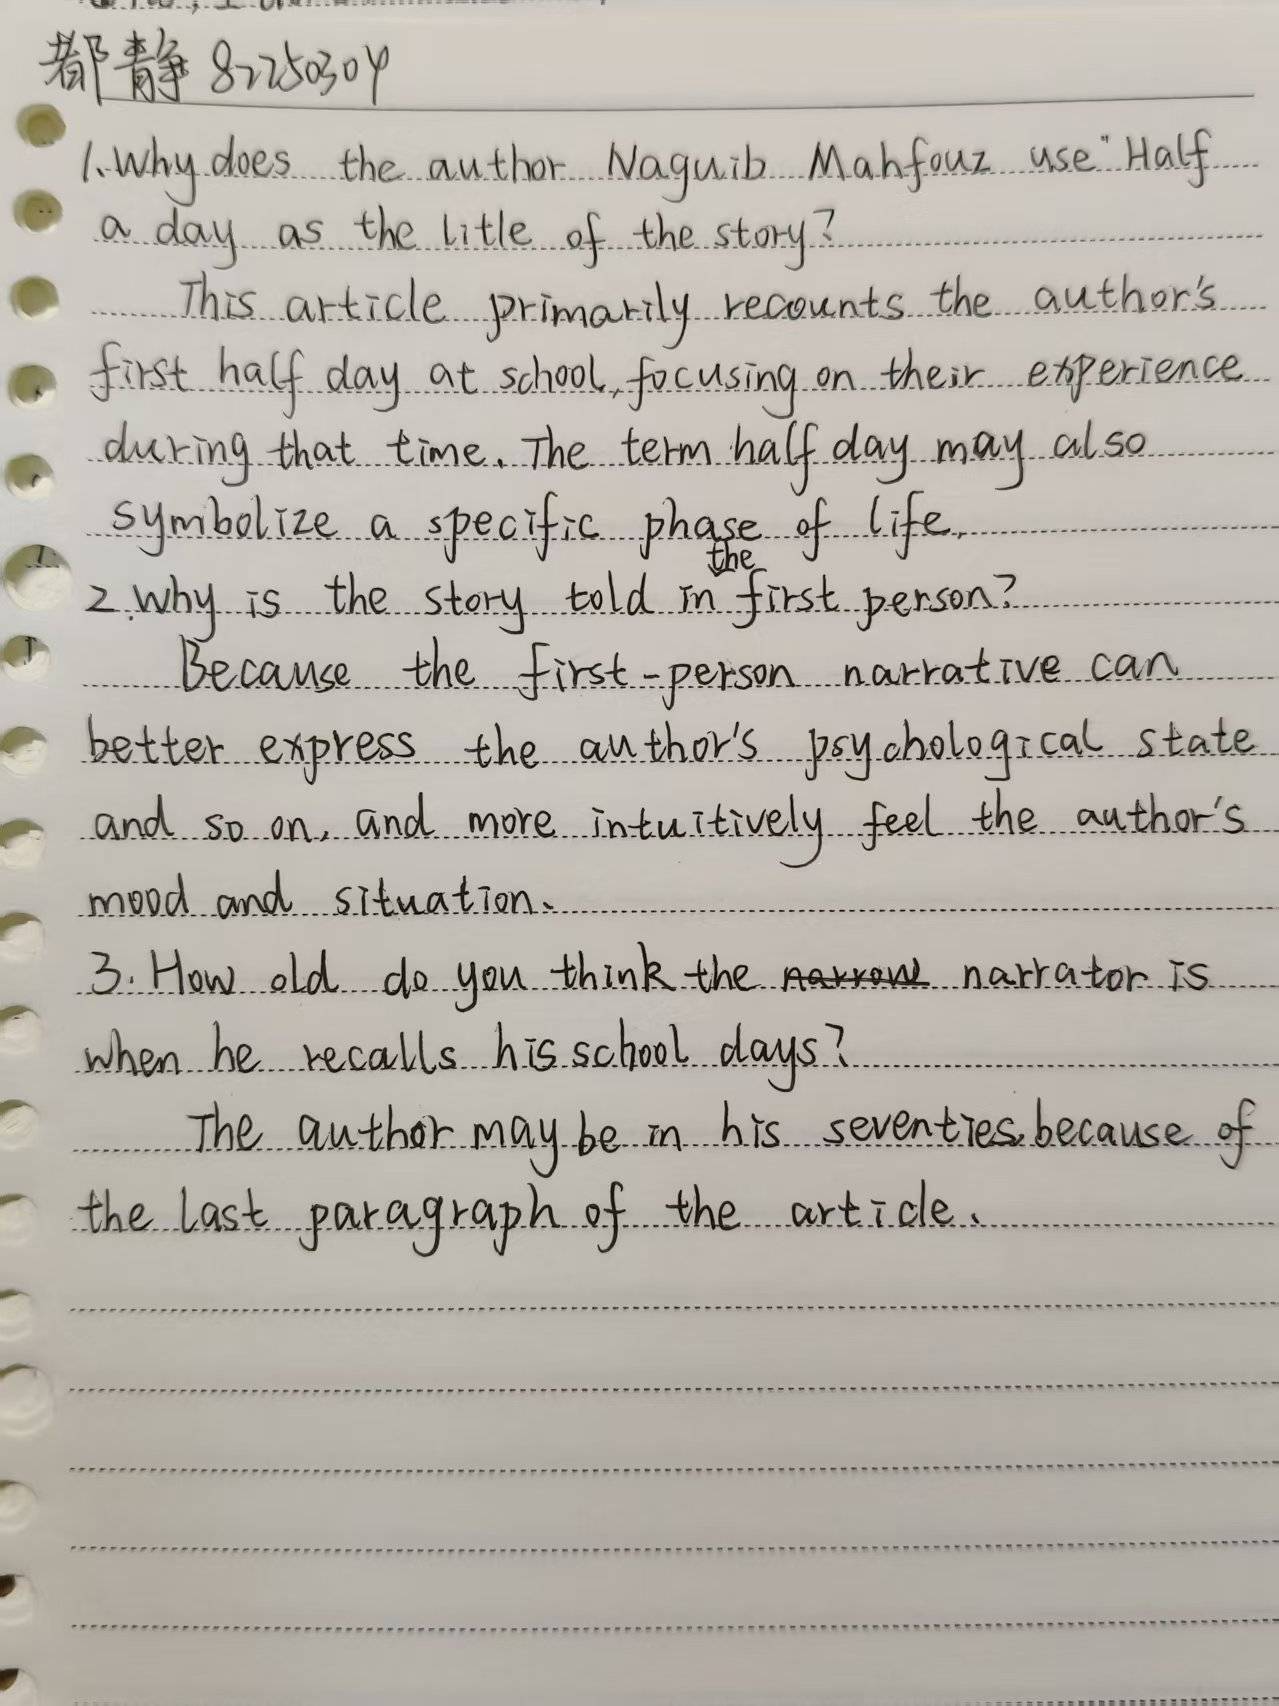 都静 82250304
1. Why does the author Naguib Mahfouz use "Half
a day as the litle of the story?
This article primarily recounts the author's
first half day at school, focusing on their experience
during that time. The term half day may also
symbolize a specific phase of life.
the
2. Why is the story told in first person?
Because the first-person narrative can
better express the author's psychological state
and so on, and more intuitively feel the author's
mood and situation.
3. How old do you think the narrow narrator is
when he recalls his school days?
The author may be in his seventies, because of
the last paragraph of the article.